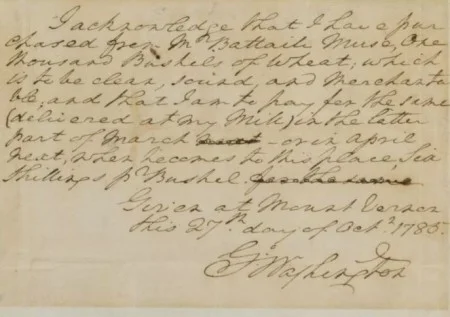 I acknowledge that I have pur
chased from Mr Battaile Muse, One
thousand Bushels of Wheat; which
is to be clean, sound, and Merchanta
ble; and that I am to pay for the same
(delivered at my Mill) in the latter
part of March next - or in April
next, when he comes to this place Six
Shillings pr Bushel for the same
Given at Mount Vernon
this 27th day of Octr 1785.
Go Washington